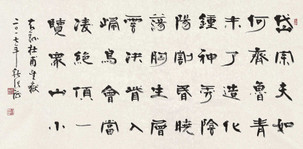 岱宗夫如
何齊魯青
未了造化
鍾神秀陰
陽割昏曉
蕩胸生層
雲決眥入
歸鳥會當
凌絶頂一
覽衆山小
杜甫望嶽
二〇一七年